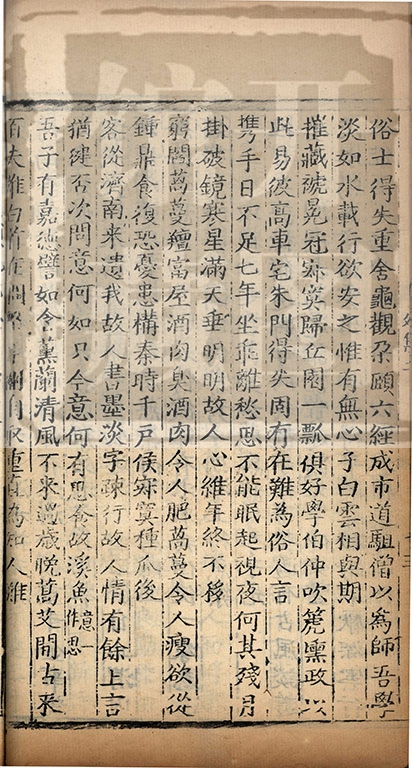 俗士得失重舍龜觀朶頤六經成市道駔僧以為師吾學
淡如水載行欲安之惟有無心子白雲相與期
摧藏褫晃冠寂寞歸丘園一瓢俱好學伯仲吹篪壎政以
此易彼髙車宅朱門得失固有在難為俗人言
携手日不足七年坐乖離愁思不能眠起視夜何其殘月
掛破鏡寒星滿天垂明明故人心維年終不移
窮閻萬蔓羶富屋酒肉臭酒肉令人肥萬蔓令人瘦欲從
鍾鼎食復恐憂患構秦時千戸侯寂寞種瓜後
客從濟南来遺我故人書墨淡字疎行故人情有餘上言
猶健否次問意何如只今意何有思食故溪魚意一作思
吾子有嘉德譬如含薰蘭清風不来過歲晚蒿艾間古来
百夫雄白首在自取重直為知人難